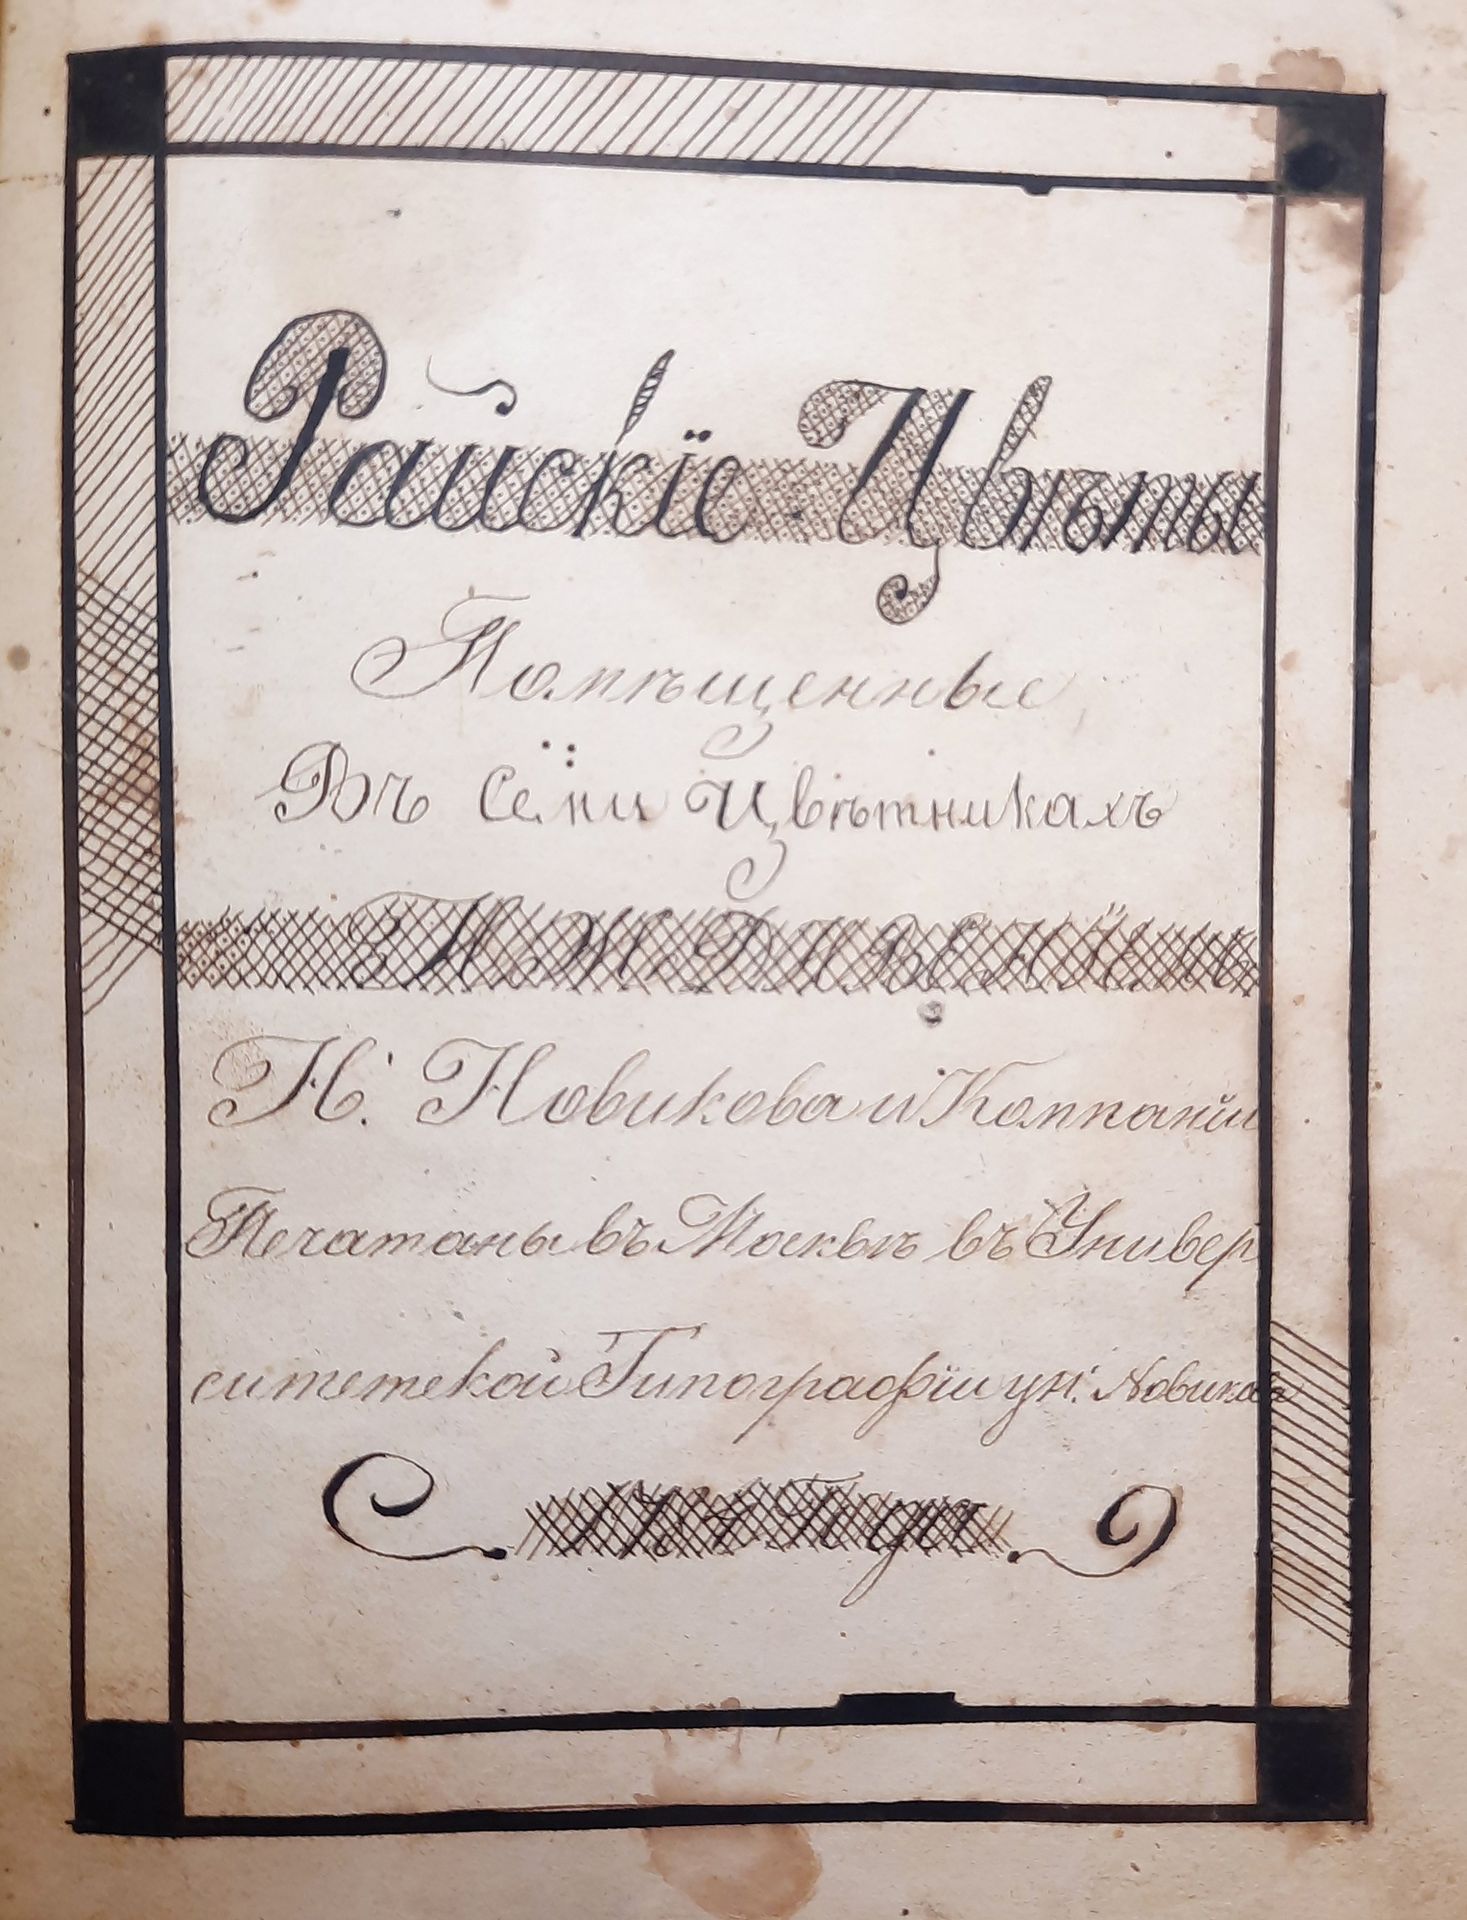 Райскіе Цвѣты
Помѣщенные
Въ Семи Цвѣтникахъ
Иждивеніемъ
Н: Новикова и Компаніи
Печатаны въ Москвѣ въ Универ
ситетской Типографіи у Н: Новикова
Года